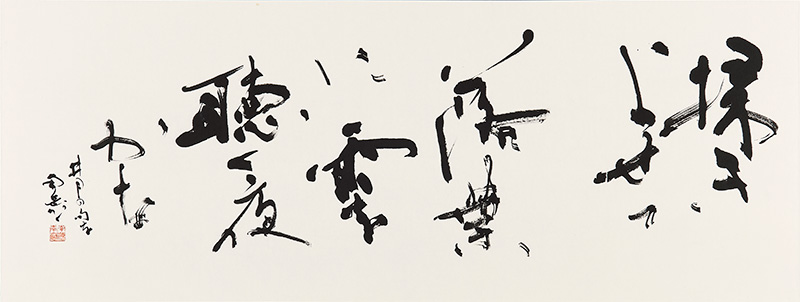 掃き
よせ
落葉
に
雪を
聴く夜
かな
井月の句